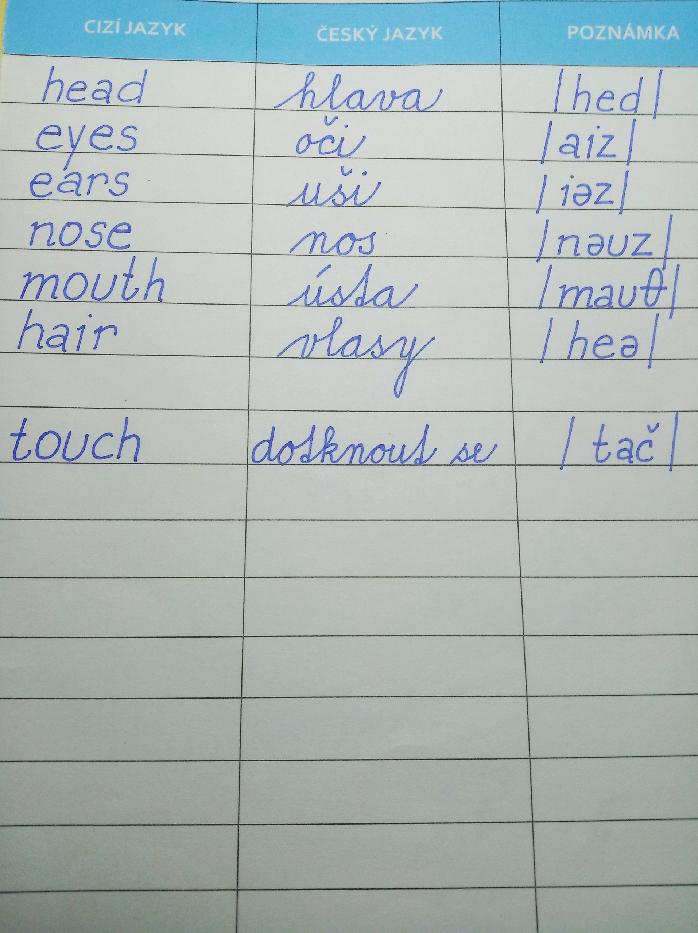 CIZÍ JAZYK ČESKÝ JAZYK POZNÁMKA
head hlava /hed/
eyes oči /aiz/
ears uši /iəz/
nose nos /nəuz/
mouth ústa /mauθ/
hair vlasy /heə/
touch dotknout se /tač/